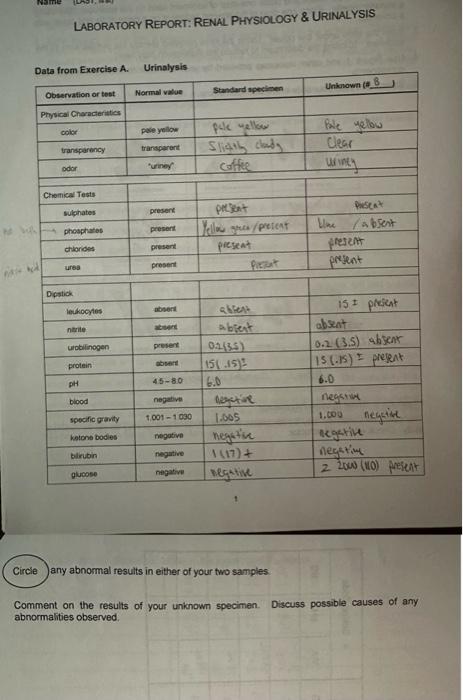 Name
LABORATORY REPORT: RENAL PHYSIOLOGY & URINALYSIS
Data from Exercise A. Urinalysis
Observation or test Normal value Standard specimen Unknown (# 8 )
Physical Characteristics
color pale yellow pale yellow Pale yellow
transparency transparent Slightly cloudy Clear
odor "uriney" coffee uriney
Chemical Tests
sulphates present present present
phosphates present Yellow green/present blue / absent
chlorides present present present
urea present present present
Dipstick
leukocytes absent absent 15 ± present
nitrite absent absent absent
urobilinogen present 0.2(3.5) 0.2 (3.5) absent
protein absent 15(.15)± 15(.15) ± present
pH 4.5-8.0 6.0 6.0
blood negative negative negative
specific gravity 1.001-1.030 1.005 1.000 negative
ketone bodies negative negative negative
bilirubin negative 1(17)+ negative
glucose negative negative 2000 (110) present
1
Circle any abnormal results in either of your two samples.
Comment on the results of your unknown specimen. Discuss possible causes of any
abnormalities observed.